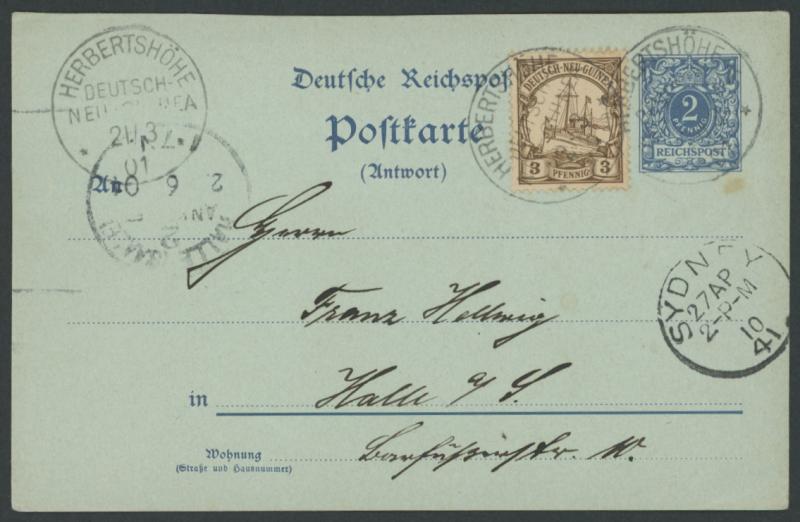 HERBERTSHÖHE
DEUTSCH-
NEU-GUINEA
21/3
01
Deutsche Reichspost
Postkarte
(Antwort)
HERBERTSHÖHE
DEUTSCH-NEU-GUINEA
3 PFENNIG 3
HERBERTSHÖHE
2
PFENNIG
REICHSPOST
An
2 6 01
HALLE
Herrn
SYDNEY
27 AP
2-P-M
10
41
Franz Hellwig
in Halle a/S.
Wohnung
(Straße und Hausnummer)
Barfüsserstr. 10.